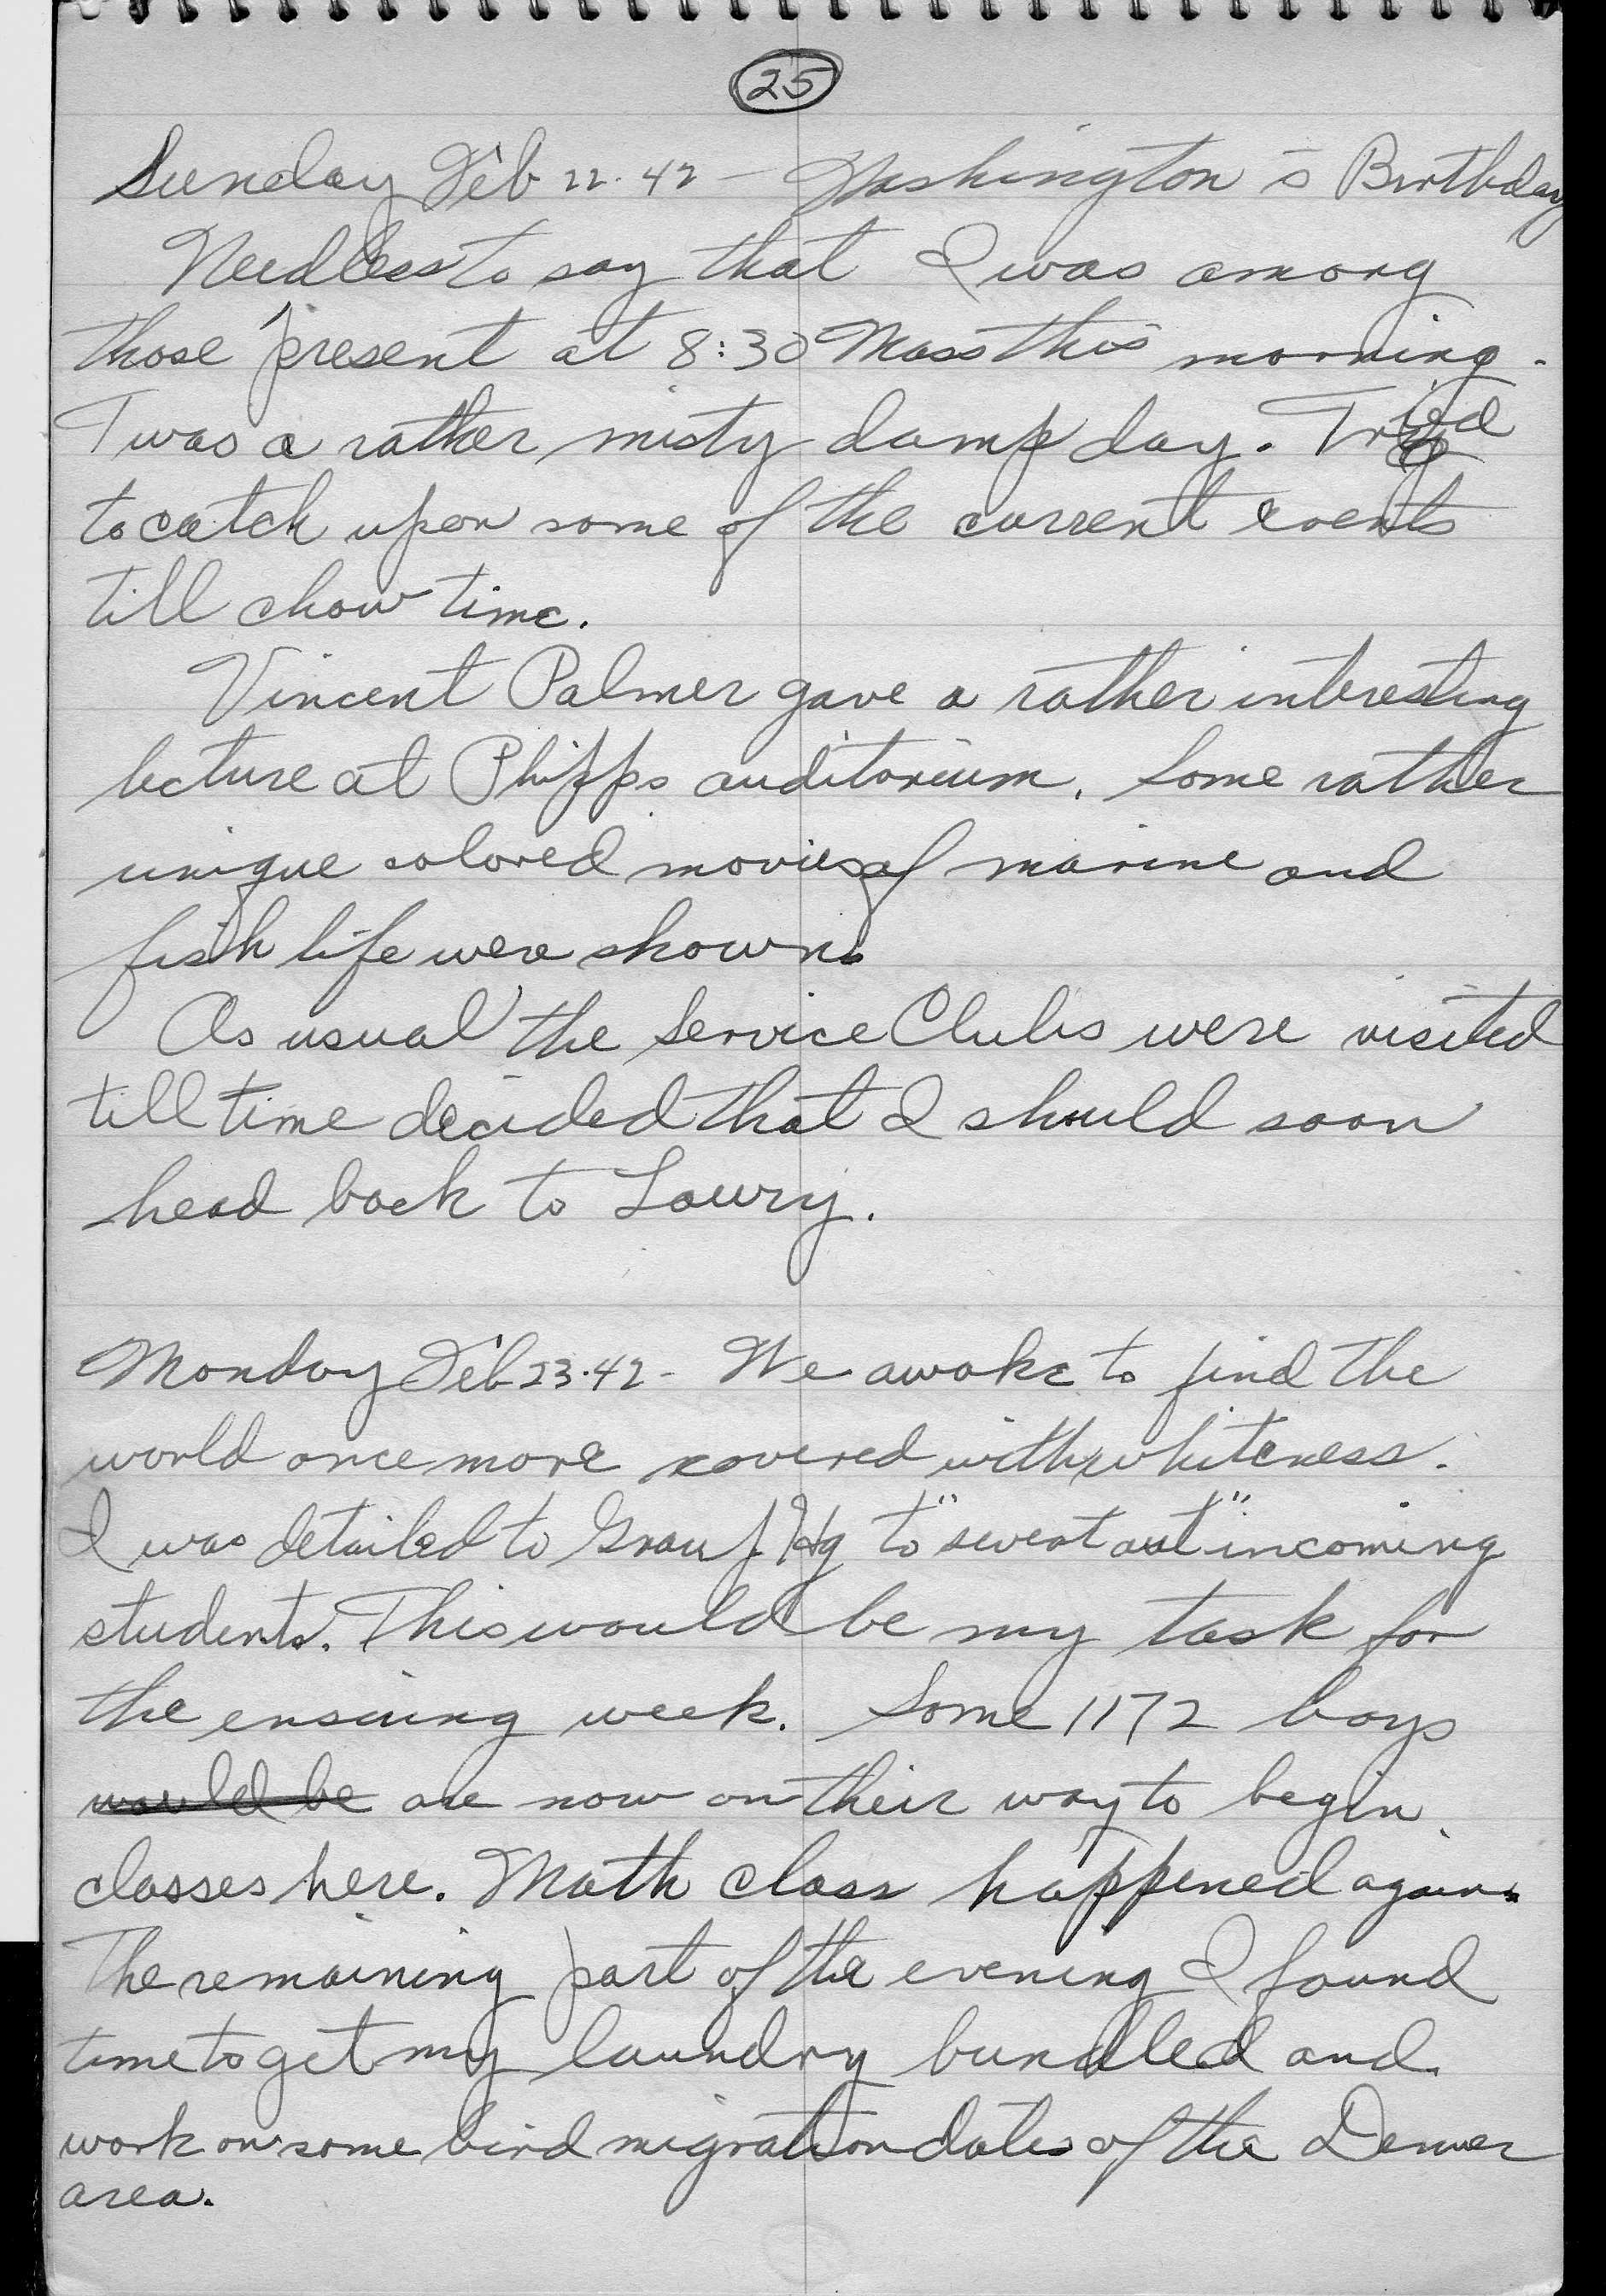 25
Sunday Feb 22. 42 - Washington's Birthday
Needless to say that I was among
those present at 8:30 Mass this morning.
Twas a rather misty damp day. Tried
to catch upon some of the current events
till chow time.
Vincent Palmer gave a rather interesting
lecture at Phipps auditorium. Some rather
unique colored movies of marine and
fish life were shown.
As usual the Service Clubs were visited
till time decided that I should soon
head back to Lowry.
Monday Feb 23. 42 - We awoke to find the
world once more covered with whiteness.
I was detailed to Group Hq to "sweat out" incoming
students. This would be my task for
the ensuing week. Some 1172 boys
would be are now on their way to begin
classes here. Math class happened again.
The remaining part of the evening I found
time to get my laundry bundled and
work on some bird migration dates of the Denver
area.